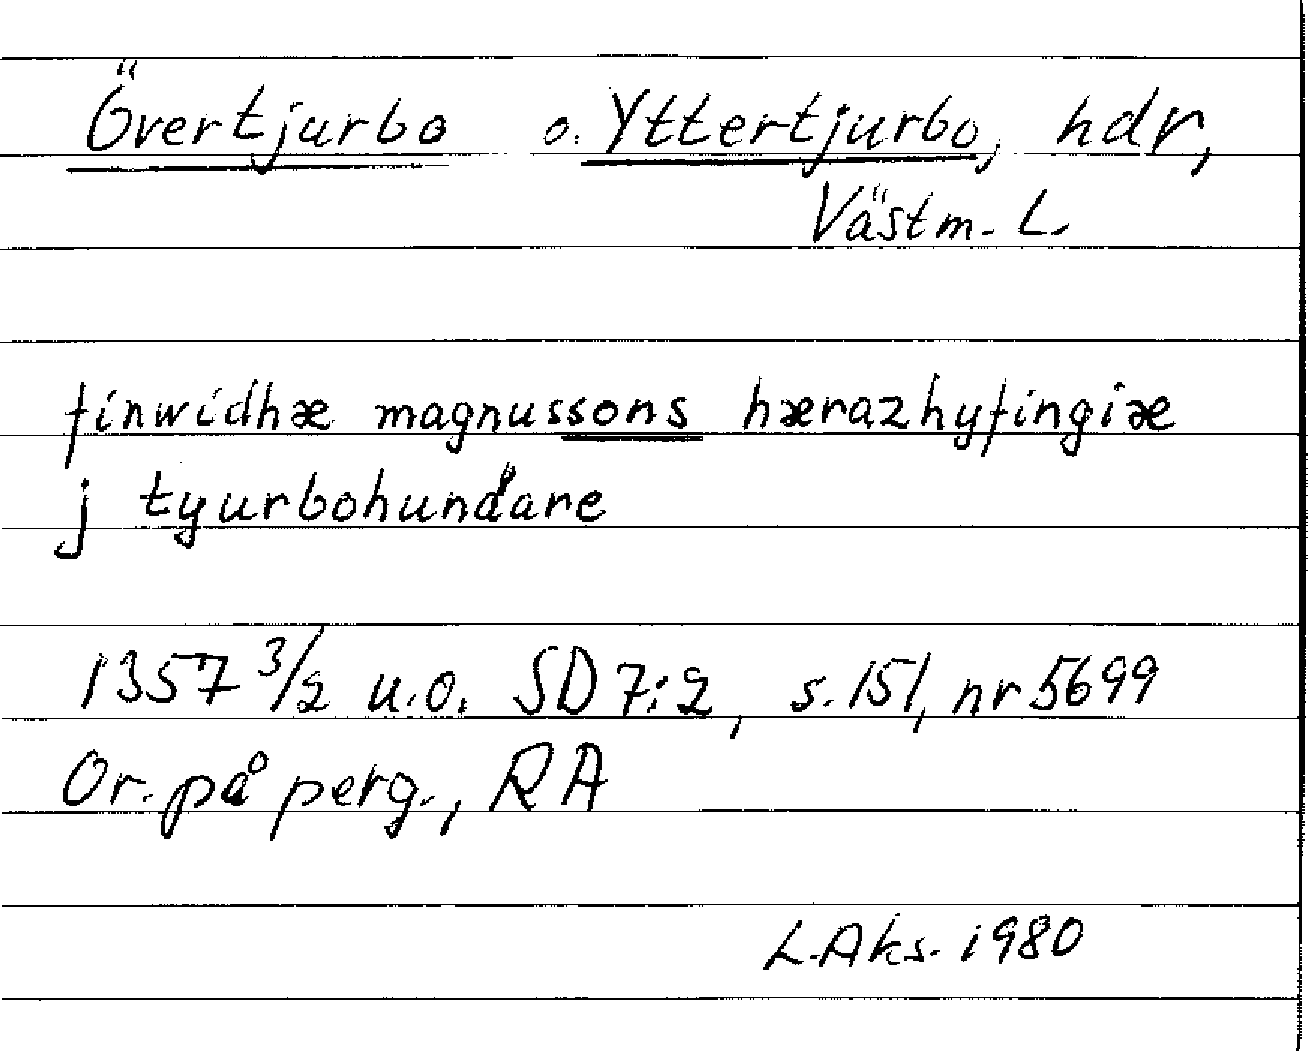 Övertjurbo o. Yttertjurbo, hdr,
Västm. L.
finwidhæ magnussons hærazhyfingiæ
j tyurbohundare
1357 3/2 u.o. SD 7:2, s. 151, nr 5699
Or. på perg., RA
L. Aks. 1980